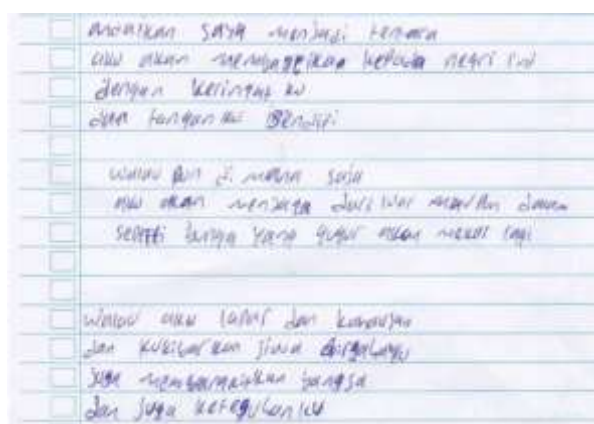 andaikan saya menjadi tentara
aku akan kepada negri ini
dengan keringat ku
dan tangan ku sendiri
walau pun di mana saja
aku akan menjaga dari luar maupun dalam
seperti bunga yang gugur akan mekar lagi
walau aku lapar dan kehausan
dan kukibarkan jiwa dirgahayu
juga membangkitkan bangsa
dan juga keteguhanku